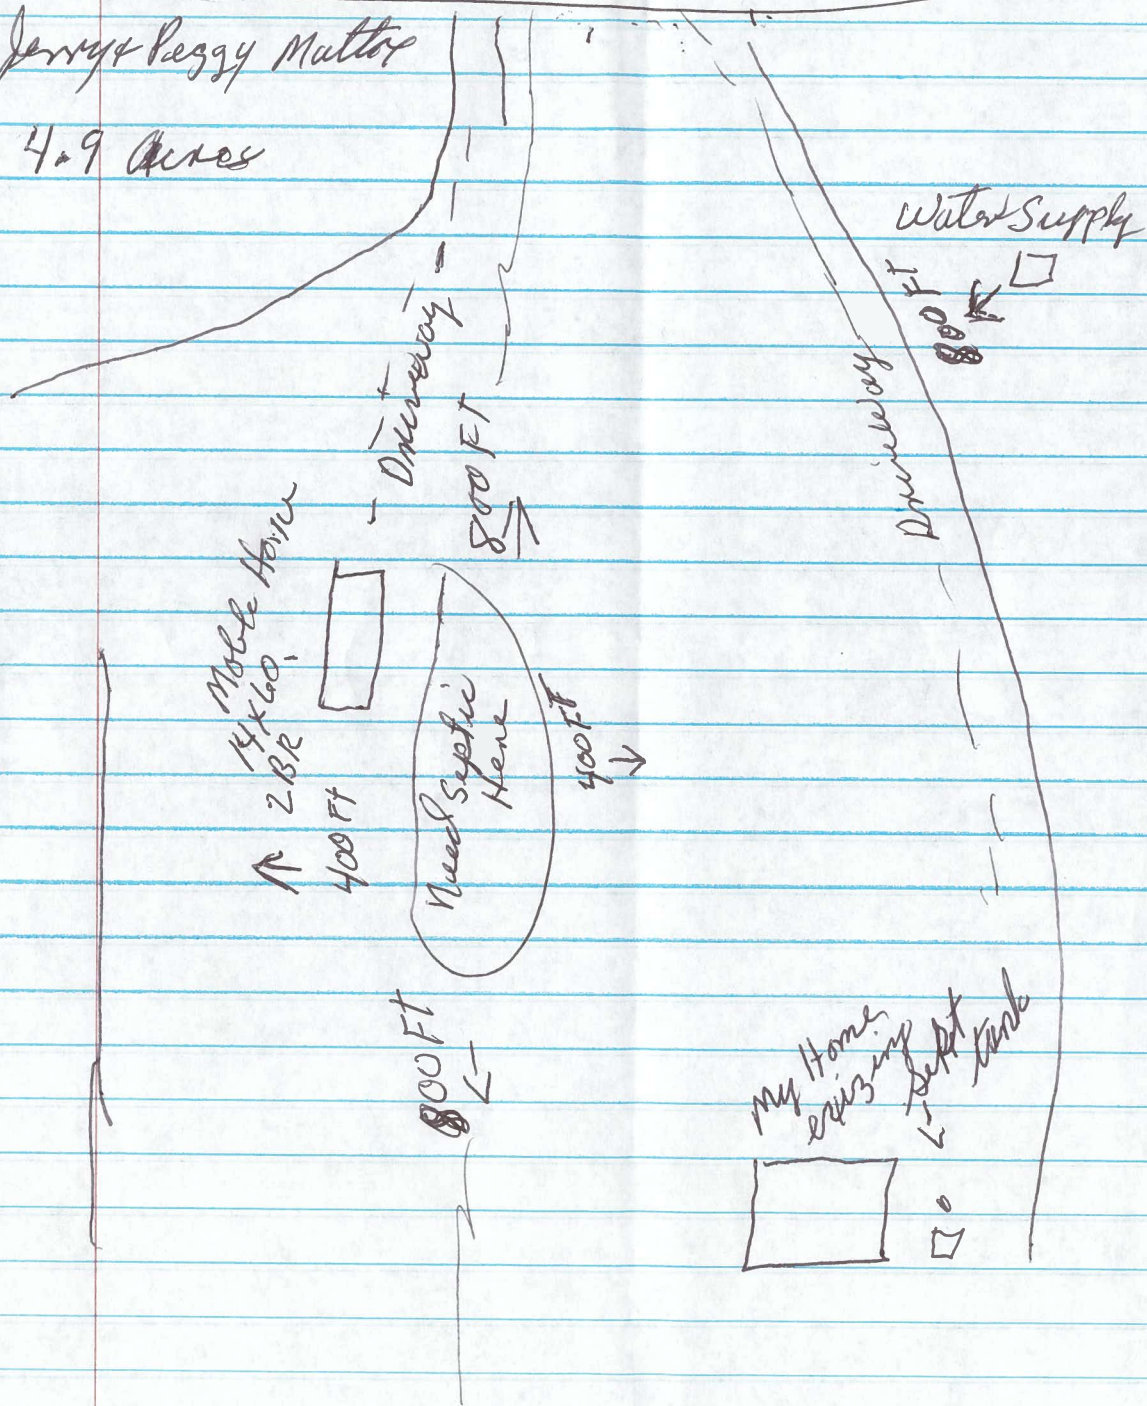 Jerry & Peggy Mattox
4.9 Acres
Water Supply
800 Ft
Driveway
Driveway
800 FT
Mobile Home
14x60
2 BR
400 Ft
Need Septic
Here
400 Ft
800 Ft
My Home
exizing
Sept
tank